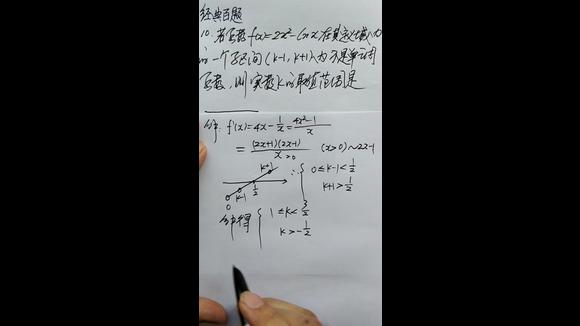 经典百题
10. 若函数f(x)=2x²-lnx,在其定义域内
的一个子区间(k-1, k+1)内不是单调
函数,则实数k的取值范围是
解: f'(x)=4x-1/x=(4x²-1)/x
=(2x+1)(2x-1)/x (x>0)~2x-1
>0
k+1 ∴{ 0≤k-1<1/2
0 k-1 1/2 k+1>1/2
0
解得 { 1≤k<3/2
k>-1/2